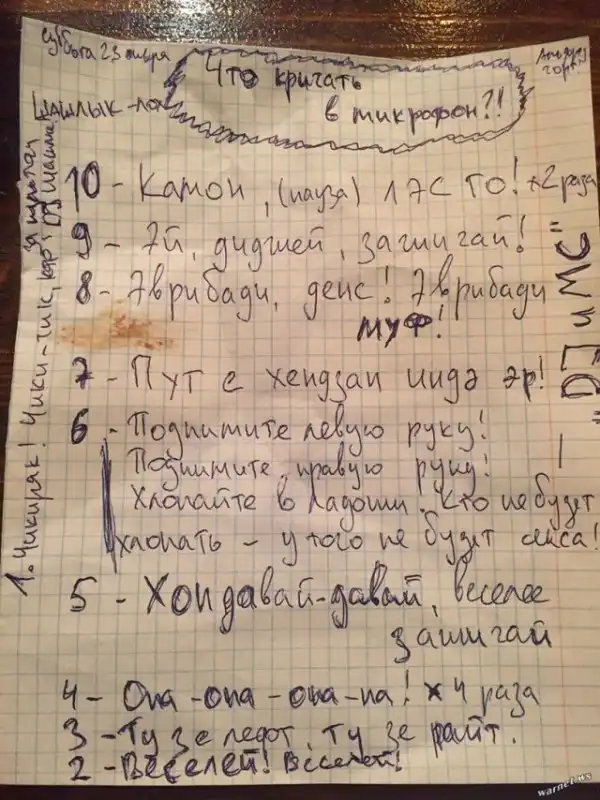 суббота 23 января
Что кричать
в микрофон?!
Шашлык-
10 - Камон, (пауза) лэс го! х2 раза
9 - Эй, диджей, зажигай!
8 - Эврибади, денс! Эврибади
муф!
7 - Пут е хендзап индэ эр!
6 - Поднимите левую руку!
Поднимите правую руку!
Хлопайте в ладоши! Кто не будет
хлопать - у того не будет секса!
5 - Хоп давай-давай, веселее
зажигай
4 - Опа-опа-опа-па! х 4 раза
3 - Ту зе лефт, ту зе райт.
2 - Веселей! Веселей!
1. Чикиряк! Чики-чик,
за пультом
DJ
"DJ и MC"
warnet.ws